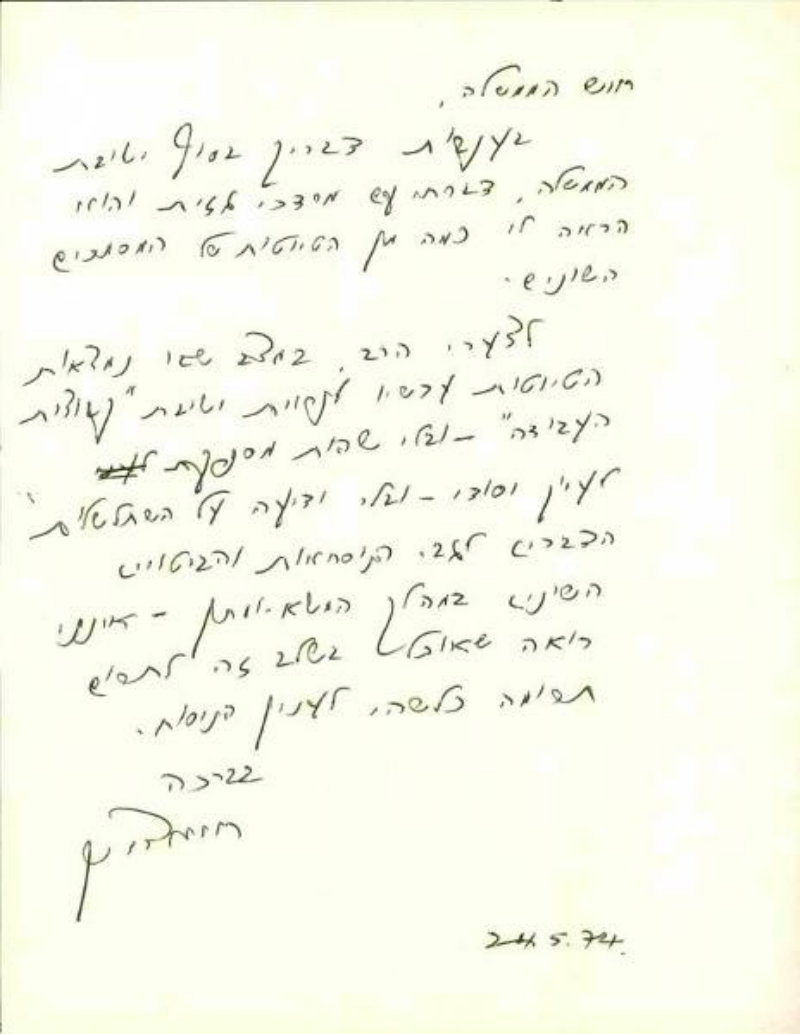 ראש הממשלה,
בעקבות דבריך בסוף ישיבת
הממשלה, דברתי עם מרדכי גזית והוא
הראה לי כמה מן הטיוטות של המסמכים
השונים.
לצערי הרב, במצב שבו נמצאות
הטיוטות עכשיו לקראת ישיבת "קבוצת
העבודה" – ובלי שהות מספקת
לעיון יסודי – ובלי ידיעה על השתלשלות
הדברים לגבי הנוסחאות והביטויים
השונים במהלך המשא-ומתן – אינני
רואה שאוכל בשלב זה לתרום
תרומה כלשהי לענין הניסוח.
בברכה
24.5.74.